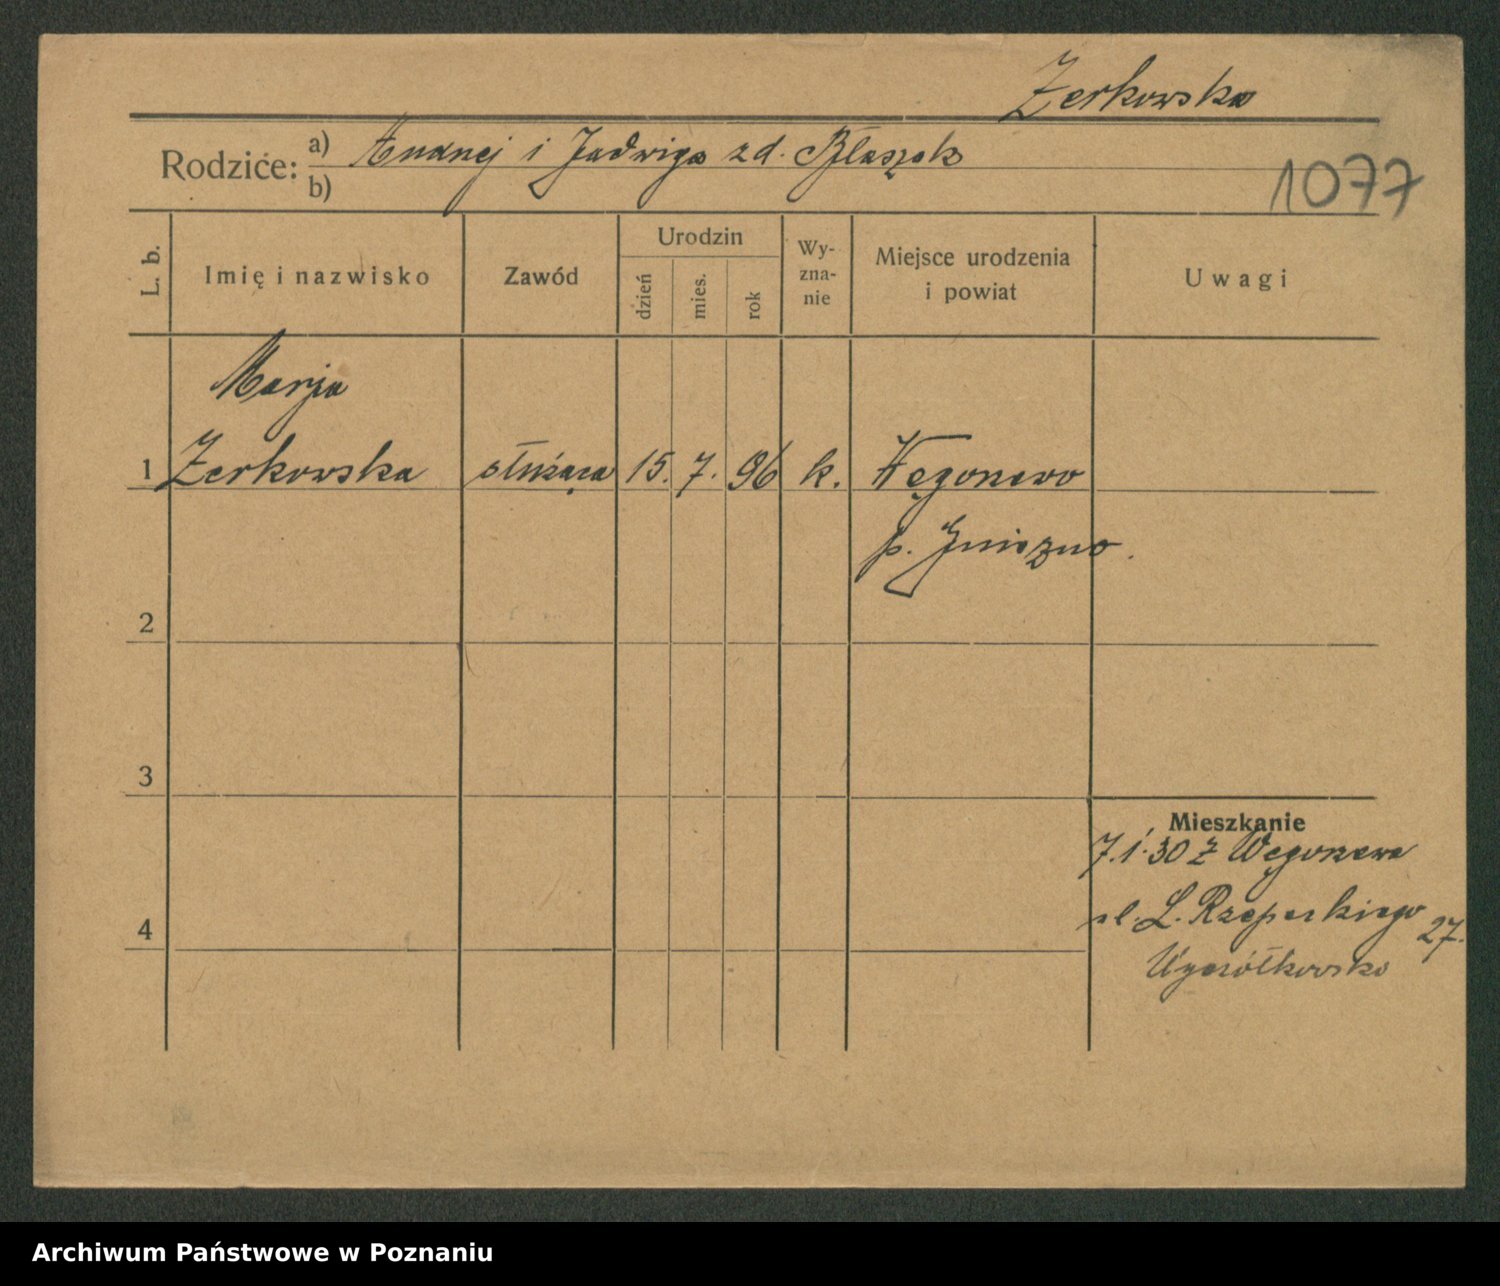 Żerkowska
Rodzice: a) Andrzej i Jadwiga zd. Błaszak
b)
1077
L. b.
Imię i nazwisko
Zawód
Urodzin
dzień
mies.
rok
Wy-
zna-
nie
Miejsce urodzenia
i powiat
Uwagi
Marja
1 Żerkowska służąca 15. 7. 96 k. Węgorzewo
p. Gniezno.
2
3
4
Mieszkanie
7.1.30 z Węgorzewa
ul. L. Rzepeckiego 27.
Archiwum Państwowe w Poznaniu